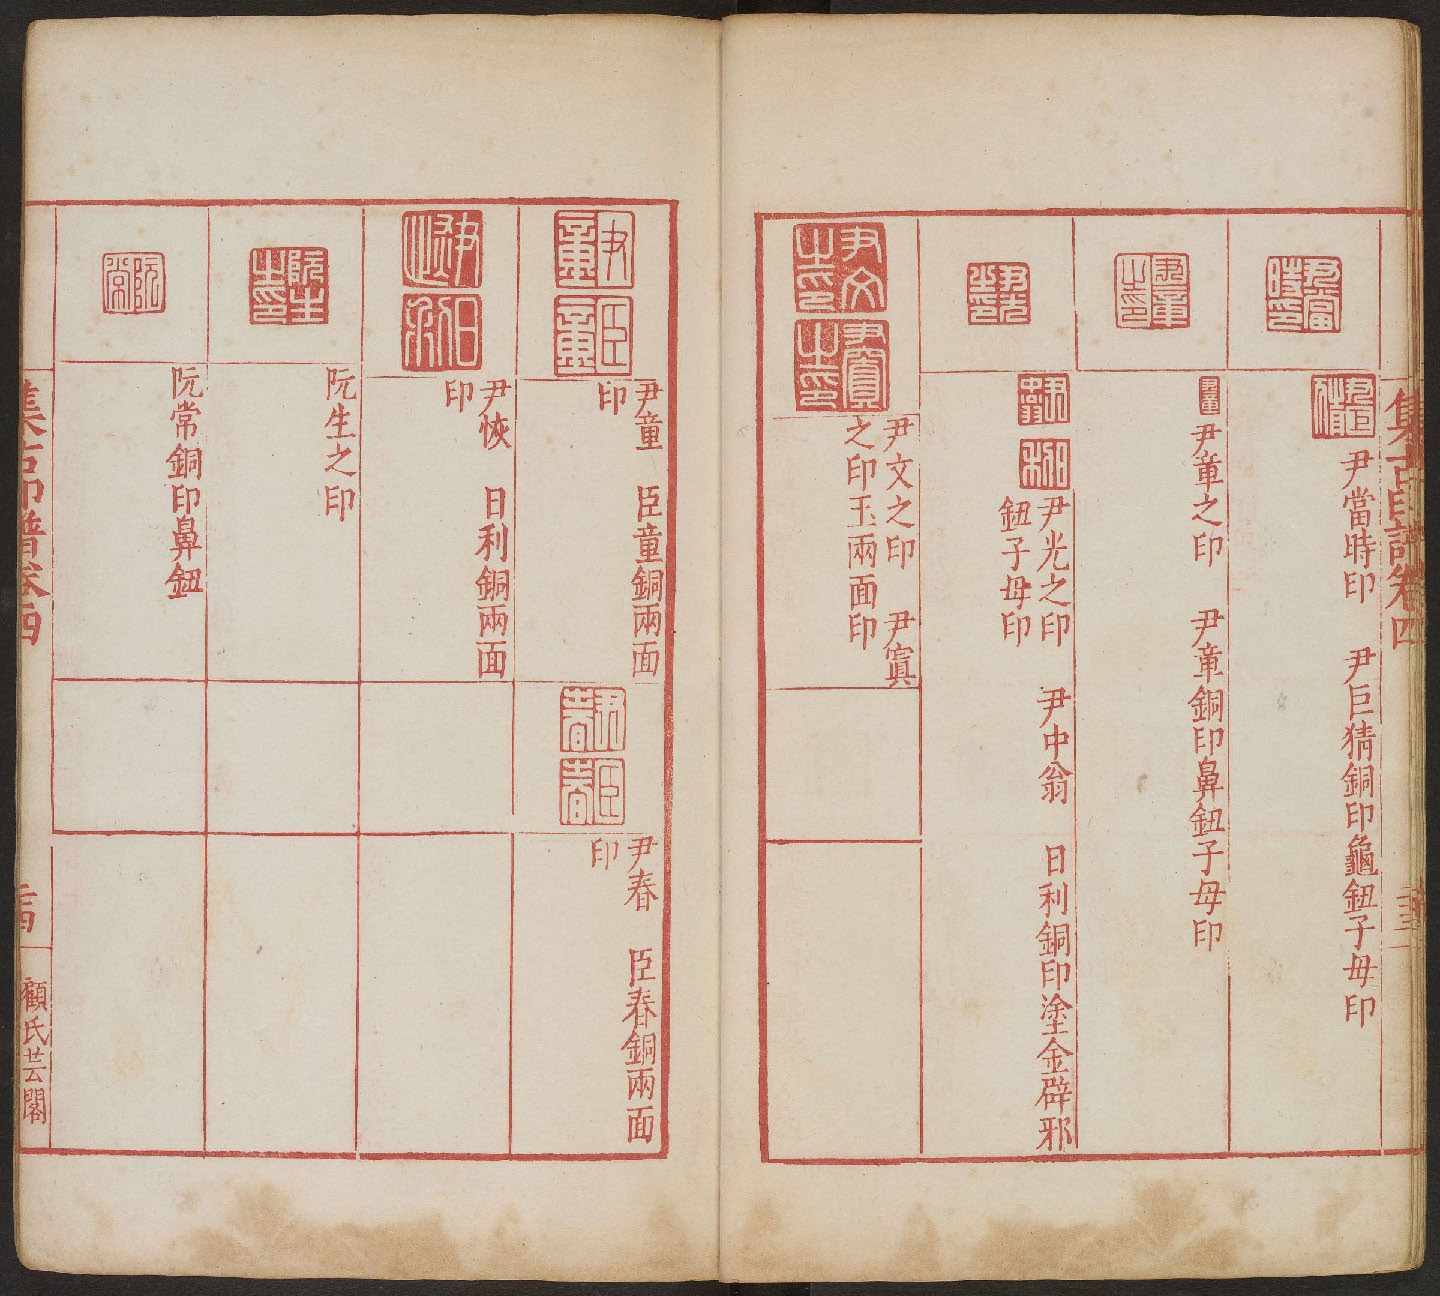 集古印譜卷四
尹當時印　尹巨猜銅印龜鈕子母印
尹章之印　尹章銅印鼻鈕子母印
尹光之印　尹中翁　日利銅印塗金辟邪
鈕子母印
尹文之印　尹寘
之印玉兩面印
尹童　臣童銅兩面
印
尹春　臣春銅兩面
印
尹恢　日利銅兩面
印
阮生之印
阮常銅印鼻鈕
集古印譜卷四
顧氏芸閣